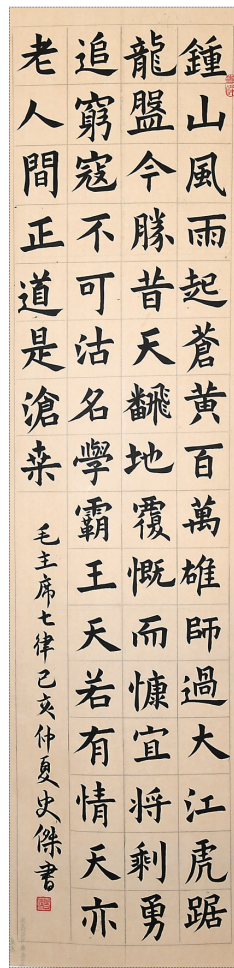 鍾山風雨起蒼黃百萬雄師過大江虎踞
龍盤今勝昔天飜地覆慨而慷宜将剩勇
追窮寇不可沽名學霸王天若有情天亦
老人間正道是滄桒
毛主席七律己亥仲夏史傑書